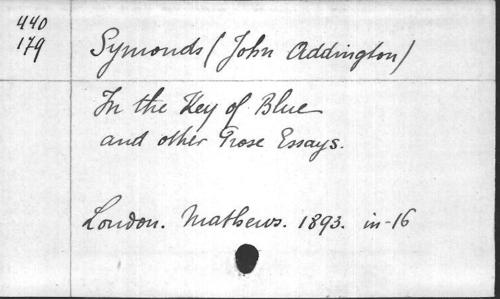 440
179
Symonds (John Addington)
In the Key of Blue
and other Prose Essays.
London. Mathews. 1893. in-16